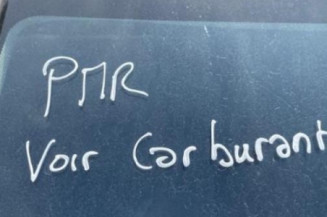 PMR
Voir Carburant